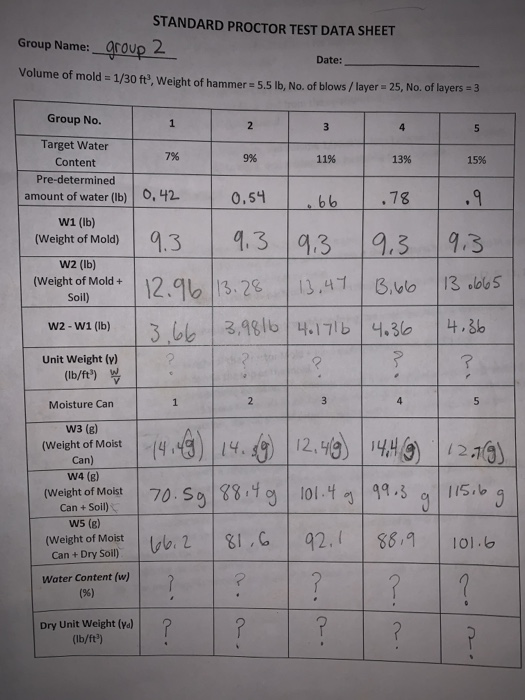 STANDARD PROCTOR TEST DATA SHEET
Group Name: group 2
Date:
Volume of mold = 1/30 ft³, Weight of hammer = 5.5 lb, No. of blows / layer = 25, No. of layers = 3
Group No. 1 2 3 4 5
Target Water
Content 7% 9% 11% 13% 15%
Pre-determined
amount of water (lb) 0.42 0.54 .66 .78 .9
W1 (lb)
(Weight of Mold) 9.3 9.3 9.3 9.3 9.3
W2 (lb)
(Weight of Mold +
Soil) 12.96 13.28 13.47 13.66 13.665
W2 - W1 (lb) 3.66 3.98lb 4.17lb 4.36 4.36
Unit Weight (γ) ? ? ? ? ?
(lb/ft³) W/V
Moisture Can 1 2 3 4 5
W3 (g)
(Weight of Moist
Can) 14.4(g) 14. (g) 12.4(g) 14.4(g) 12.7(g)
W4 (g)
(Weight of Moist
Can + Soil) 70.5g 88.4g 101.4 g 99.3 g 115.6 g
W5 (g)
(Weight of Moist
Can + Dry Soil) 66.2 81.6 92.1 88.9 101.6
Water Content (w)
(%) ? ? ? ? ?
Dry Unit Weight (γd)
(lb/ft³) ? ? ? ? ?